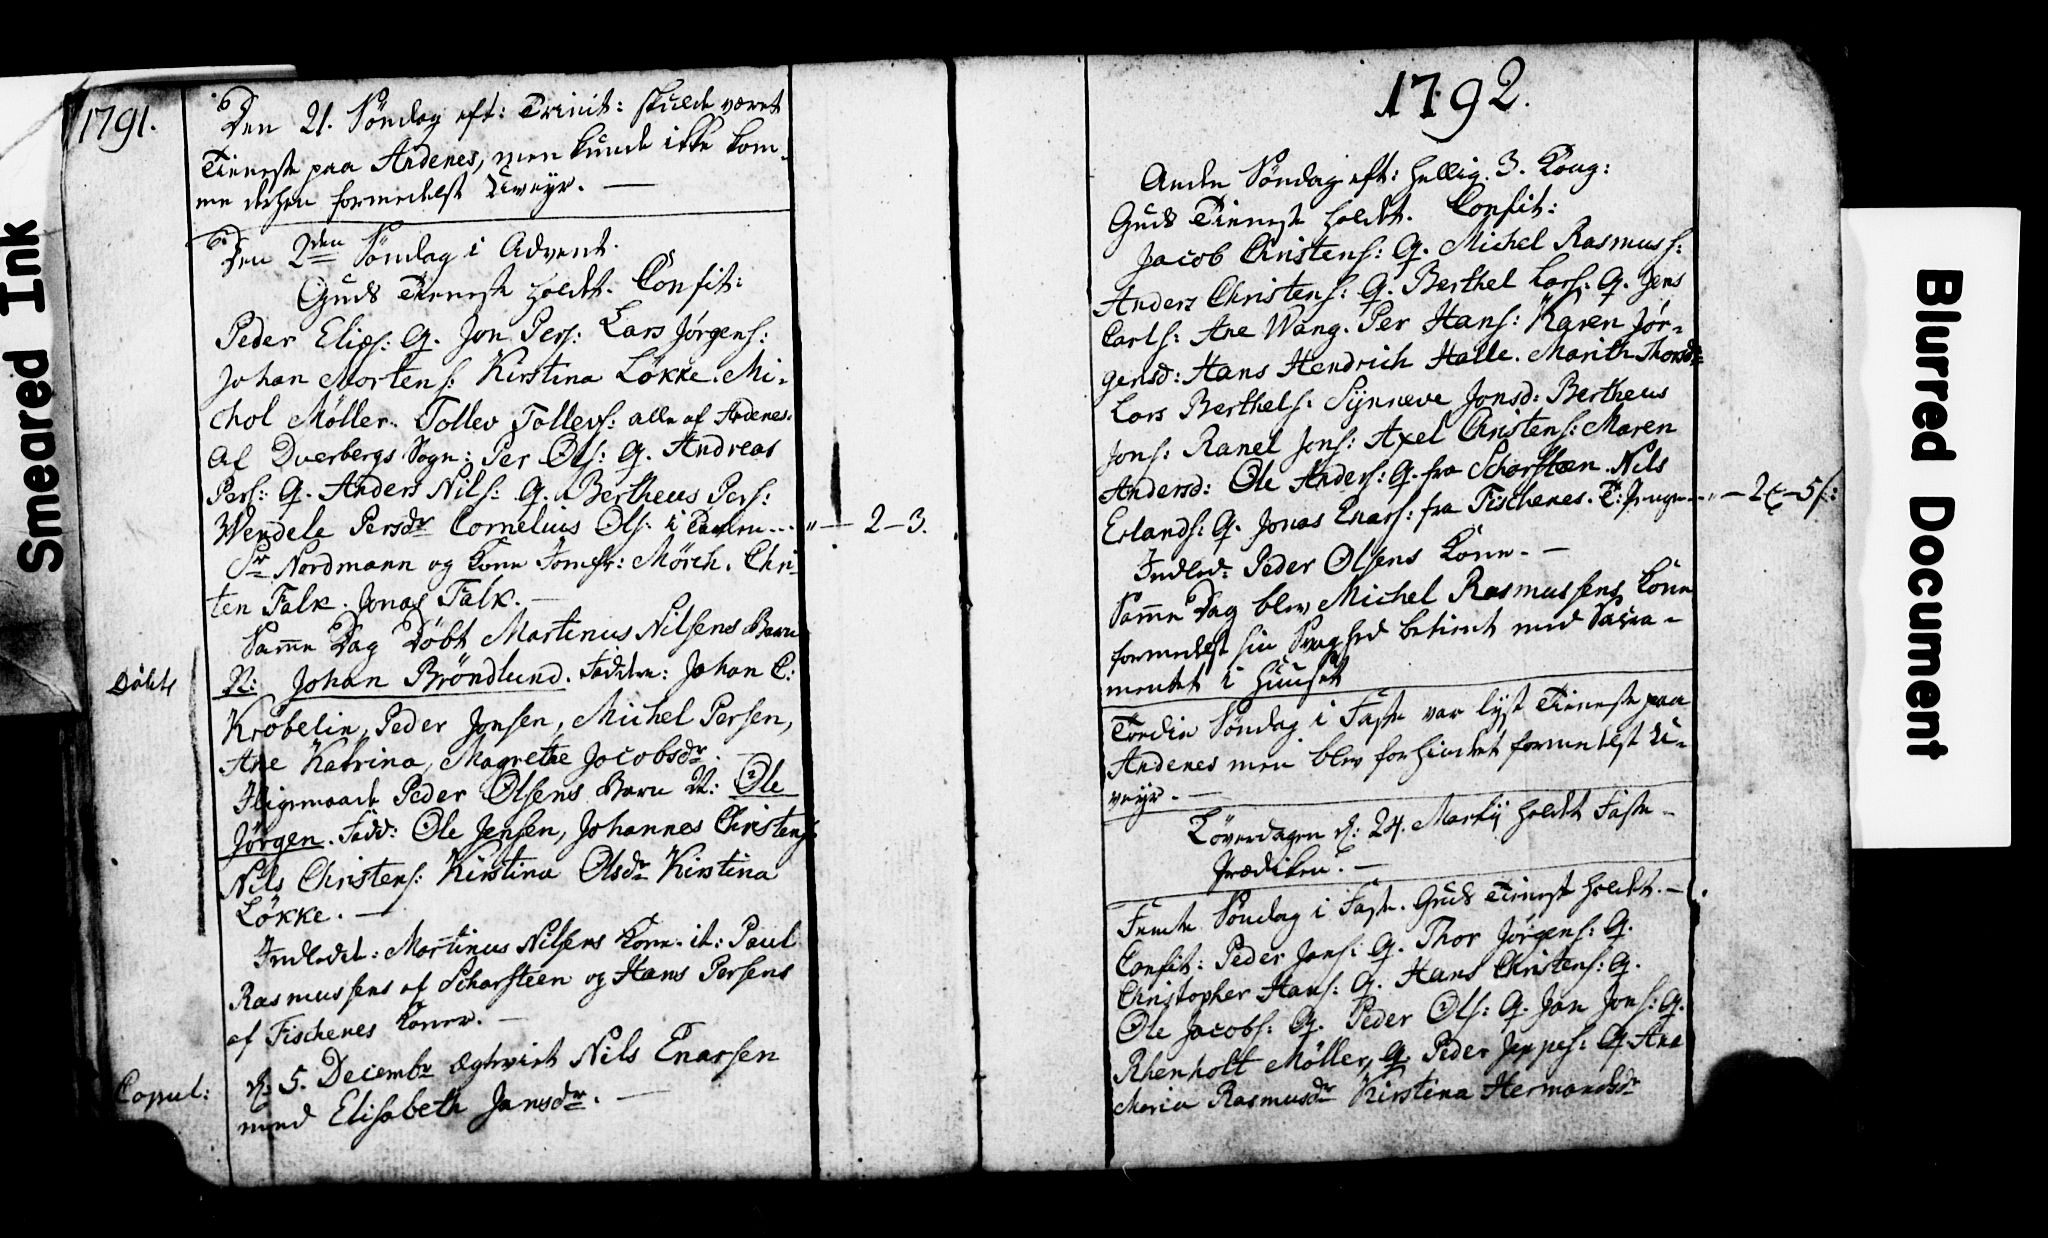 Smeared Ink
1791.
Den 21. Söndag eft: Trinit: skulde været
Tieneste paa Andenes, men kunde ikke kom-
me derhen formedelst Uveyr. —
Den 2den Söndag i Advent.
Guds Tieneste holdt. Confit:
Peder Elies: Q. Jon Pers: Lars Jørgens:
Johan Mortens: Kirstina Løkke. Mi-
chol Möller. Tollev Tollevs: alle af Andenes.
Af Dverbergs Sogn: Per Ols: Q. Andreas
Pers: Q. Anders Nils: Q. Bertheus Pers:
Wendele Persdr Cornelius Ols: i — 2–3.
Sr Nordmann og Kone Jomfr: Mörch. Chri-
ten Falk. Jonas Falk. —
Samme Dag Döbt Martinus Nilsens Barn
Døbte
N: Johan Bröndlund. Faddere: Johan C:
Kröbelin, Peder Jonsen, Michel Persen,
Ane Katrina, Magrethe Jacobsdr.
Iligemaade Peder Olsens Barn N: Ole
Jörgen. Fadd: Ole Jensen, Johannes Christens:
Nils Christens: Kirstina Olsdr Kirstina
Løkke. —
Indledt: Martinus Nilsens Kone. it: Paul
Rasmussens af Scharsteen og Hans Persens
af Fischenes Koner. —
Copul:
d: 5. Decembr Egteviet Nils Enarsen
med Elisabeth Jansdr. —
1792.
Anden Söndag eft: Hellig. 3. Kong:
Guds Tieneste holdt. Confit:
Jacob Christens: Q. Michel Rasmuss:
Anders Christens: Q. Berthel Lars: Q. Jens
Carls: Ane Wang. Per Hans: Karen Jør-
gensd: Hans Hendrich Halle. Marith Thorsdr
Lars Berthels: Synneve Jonsd: Bertheus
Jons: Ranel Jons: Axel Christens: Maren
Andersd: Ole Anders: Q. fra Scharsteen. Nils
Erlands: Q. Jonas Enars: fra Fischenes. — 2 – 5
Indled: Peder Olsens Kone. —
Samme Dag blev Michel Rasmussens Kone
formedelst sin Svaghed betient med Sacra-
mentet i Huuset
Tredie Söndag i Faste var lyst Tieneste paa
Andenes men blev forhindret formedelst U-
veyr. —
Löverdagen d: 24. Martij holdt Faste-
Prædiken. —
Femte Söndag i Faste. Guds Tieneste holdt. —
Confit: Peder Jans: Q. Thor Jörgens: Q.
Christopher Hans: Q. Hans Christens: Q.
Ole Jacobs: Q. Peder Ols: Q. Jon Jons: Q.
Rhenholt Möller, Q. Peder Jeppes: Q. Ane
Maria Rasmusdr Kirstina Hermansdr
Blurred Document